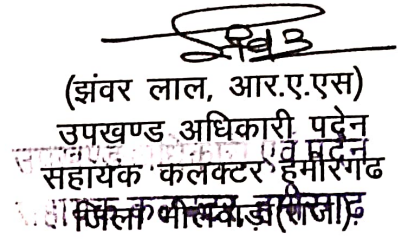 (झंवर लाल, आर.ए.एस)
उपखण्ड अधिकारी पदेन
सहायक कलक्टर हमीरगढ
जिला भीलवाड़ा(राज0)